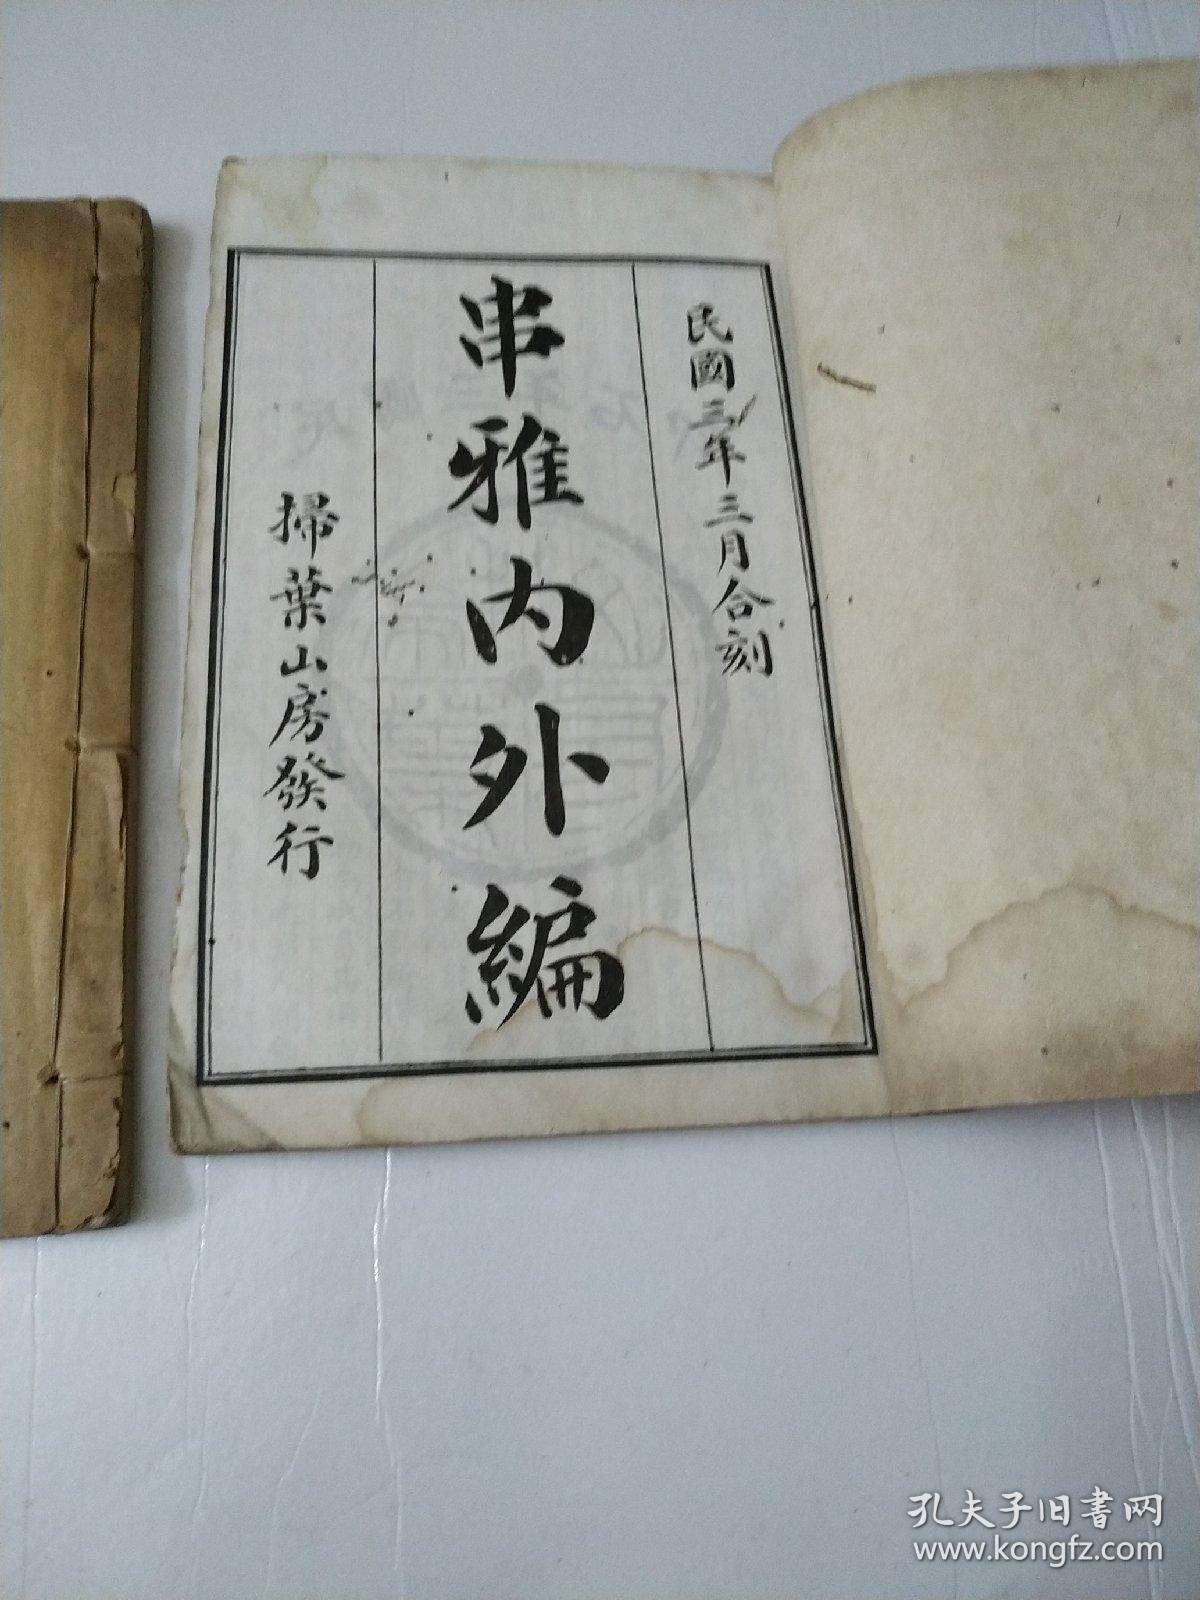 民國三年三月合刻
串雅內外編
掃葉山房發行
孔夫子旧書网
www.kongfz.com